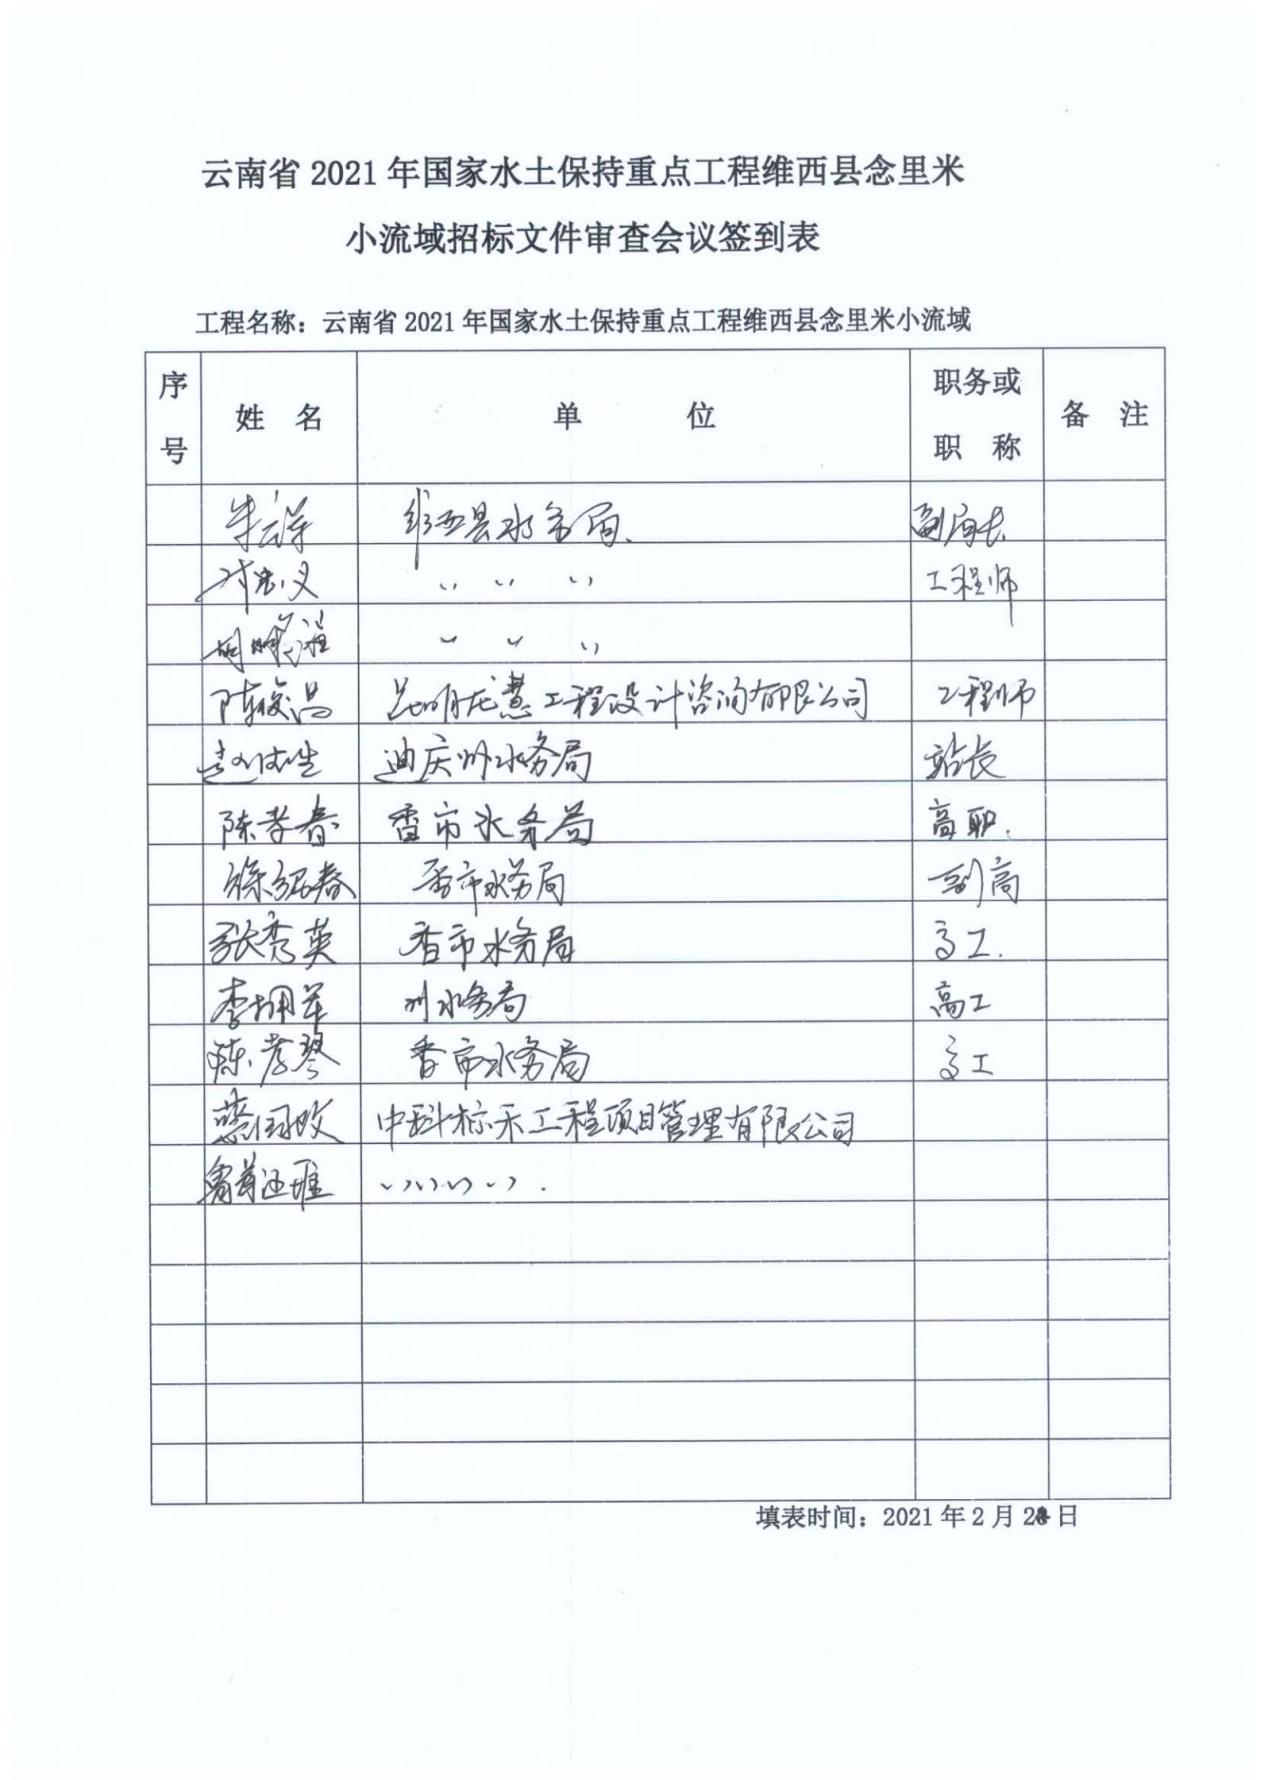 云南省 2021 年国家水土保持重点工程维西县念里米
小流域招标文件审查会议签到表
工程名称：云南省 2021 年国家水土保持重点工程维西县念里米小流域
序号 姓 名 单 位 职务或职 称 备 注
维西县水务局 副局长
〃 〃 〃 工程师
〃 〃 〃
陈俊昌 昆明龙慧工程设计咨询有限公司 工程师
迪庆州水务局 站长
陈孝春 香市水务局 高职
徐绍春 香市水务局 副高
张秀英 香市水务局 高工
李拥军 州水务局 高工
陈孝琴 香市水务局 高工
中科标禾工程项目管理有限公司
〃 〃 〃 〃 〃
填表时间：2021 年 2 月 日